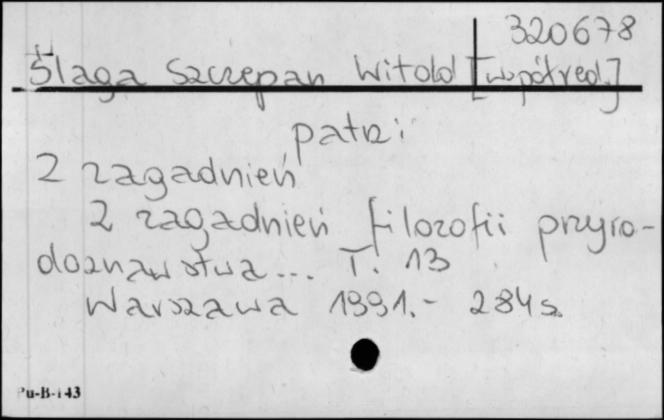 320678
Ślaga Szczepan Witold [współred.]
patrz:
Z zagadnień
Z zagadnień filozofii przyro-
doznawstwa... T. 13
Warszawa 1991.- 284 s.
Pu-B-143